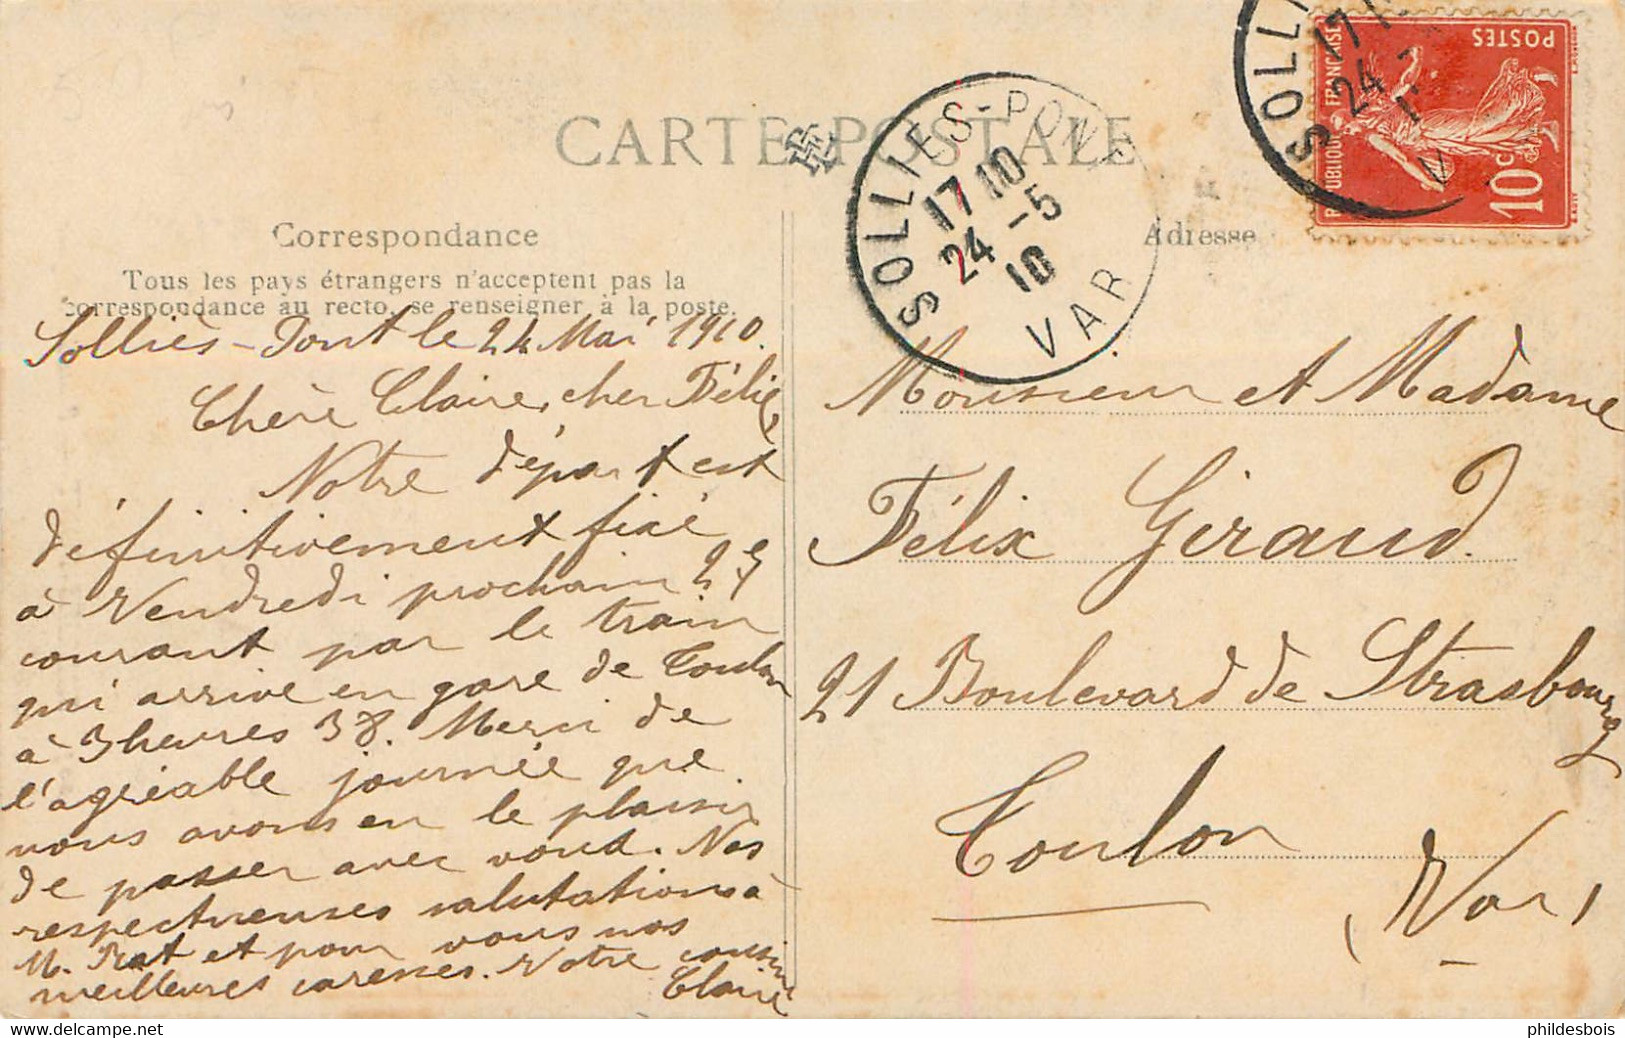 CARTE POSTALE
Correspondance
Tous les pays étrangers n'acceptent pas la
correspondance au recto, se renseigner à la poste.
Solliès-Pont le 24 Mai 1910.
Chère Claire, cher Félix,
Notre départ est
définitivement fixé
à Vendredi prochain 27
courant par le train
qui arrive en gare de Toulon
à 3 heures 38. Merci de
l'agréable journée que
nous avons eu le plaisir
de passer avec vous. Nos
respectueuses salutations à
M. Prat et pour vous nos
meilleures caresses. Notre cousine
Claire
SOLLIES-PONT
17 10
24 -5
10
VAR
SOLLI
17 1
24
1
V
REPUBLIQUE FRANÇAISE
POSTES
10 c
Adresse
Monsieur et Madame
Félix Giraud
21 Boulevard de Strasbourg
Toulon
(Var)
phildesbois